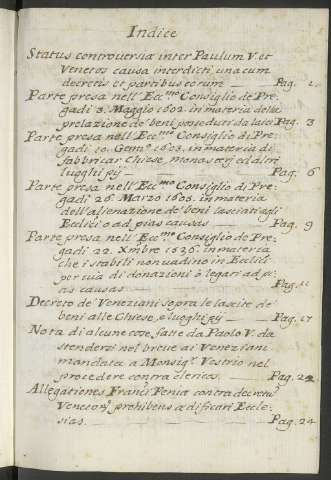 Indice
Status controversiæ inter Paulum V. et
Venetos causa interdicti, una cum
decretis et partibus eorum — Pag. 1.
Parte presa nell' Ecc.mo Consiglio de Pre-
gadi 3. Maggio 1602. in materia della
prelazione de' beni posseduti da laici Pag. 3
Parte presa nell' Ecc.mo Consiglio di Pre-
gadi 10. Genn.o 1603. in materia di
fabbricar Chiese, monasterj ed altri
luoghi pij — Pag. 6
Parte presa nell' Ecc.mo Consiglio di Pre-
gadi 26. Marzo 1605. in materia
dell' alienazione de' beni lasciati agli
Eccl.ci o ad pias causas — Pag. 9
Parte presa nell' Ecc.mo Consiglio de Pre-
gadi 22. Xmbre 1536. in materia
che i stabili non vadino in Eccl.ci
per via di donazioni o legati ad pi-
as causas — Pag. 11
Decreto de' Veneziani sopra le lascite de'
beni alle Chiese, e luoghi pij — Pag. 17
Nota di alcune cose fatte da Paolo V. da
stendersi nel breve ai Veneziani
mandata a Monsig.r Vestrio nel
procedere contra clericos. — Pag. 22
Allegationes Franc.i Penia contra decretum
Venetor. prohibens ædificari Eccle-
sias. — Pag. 24